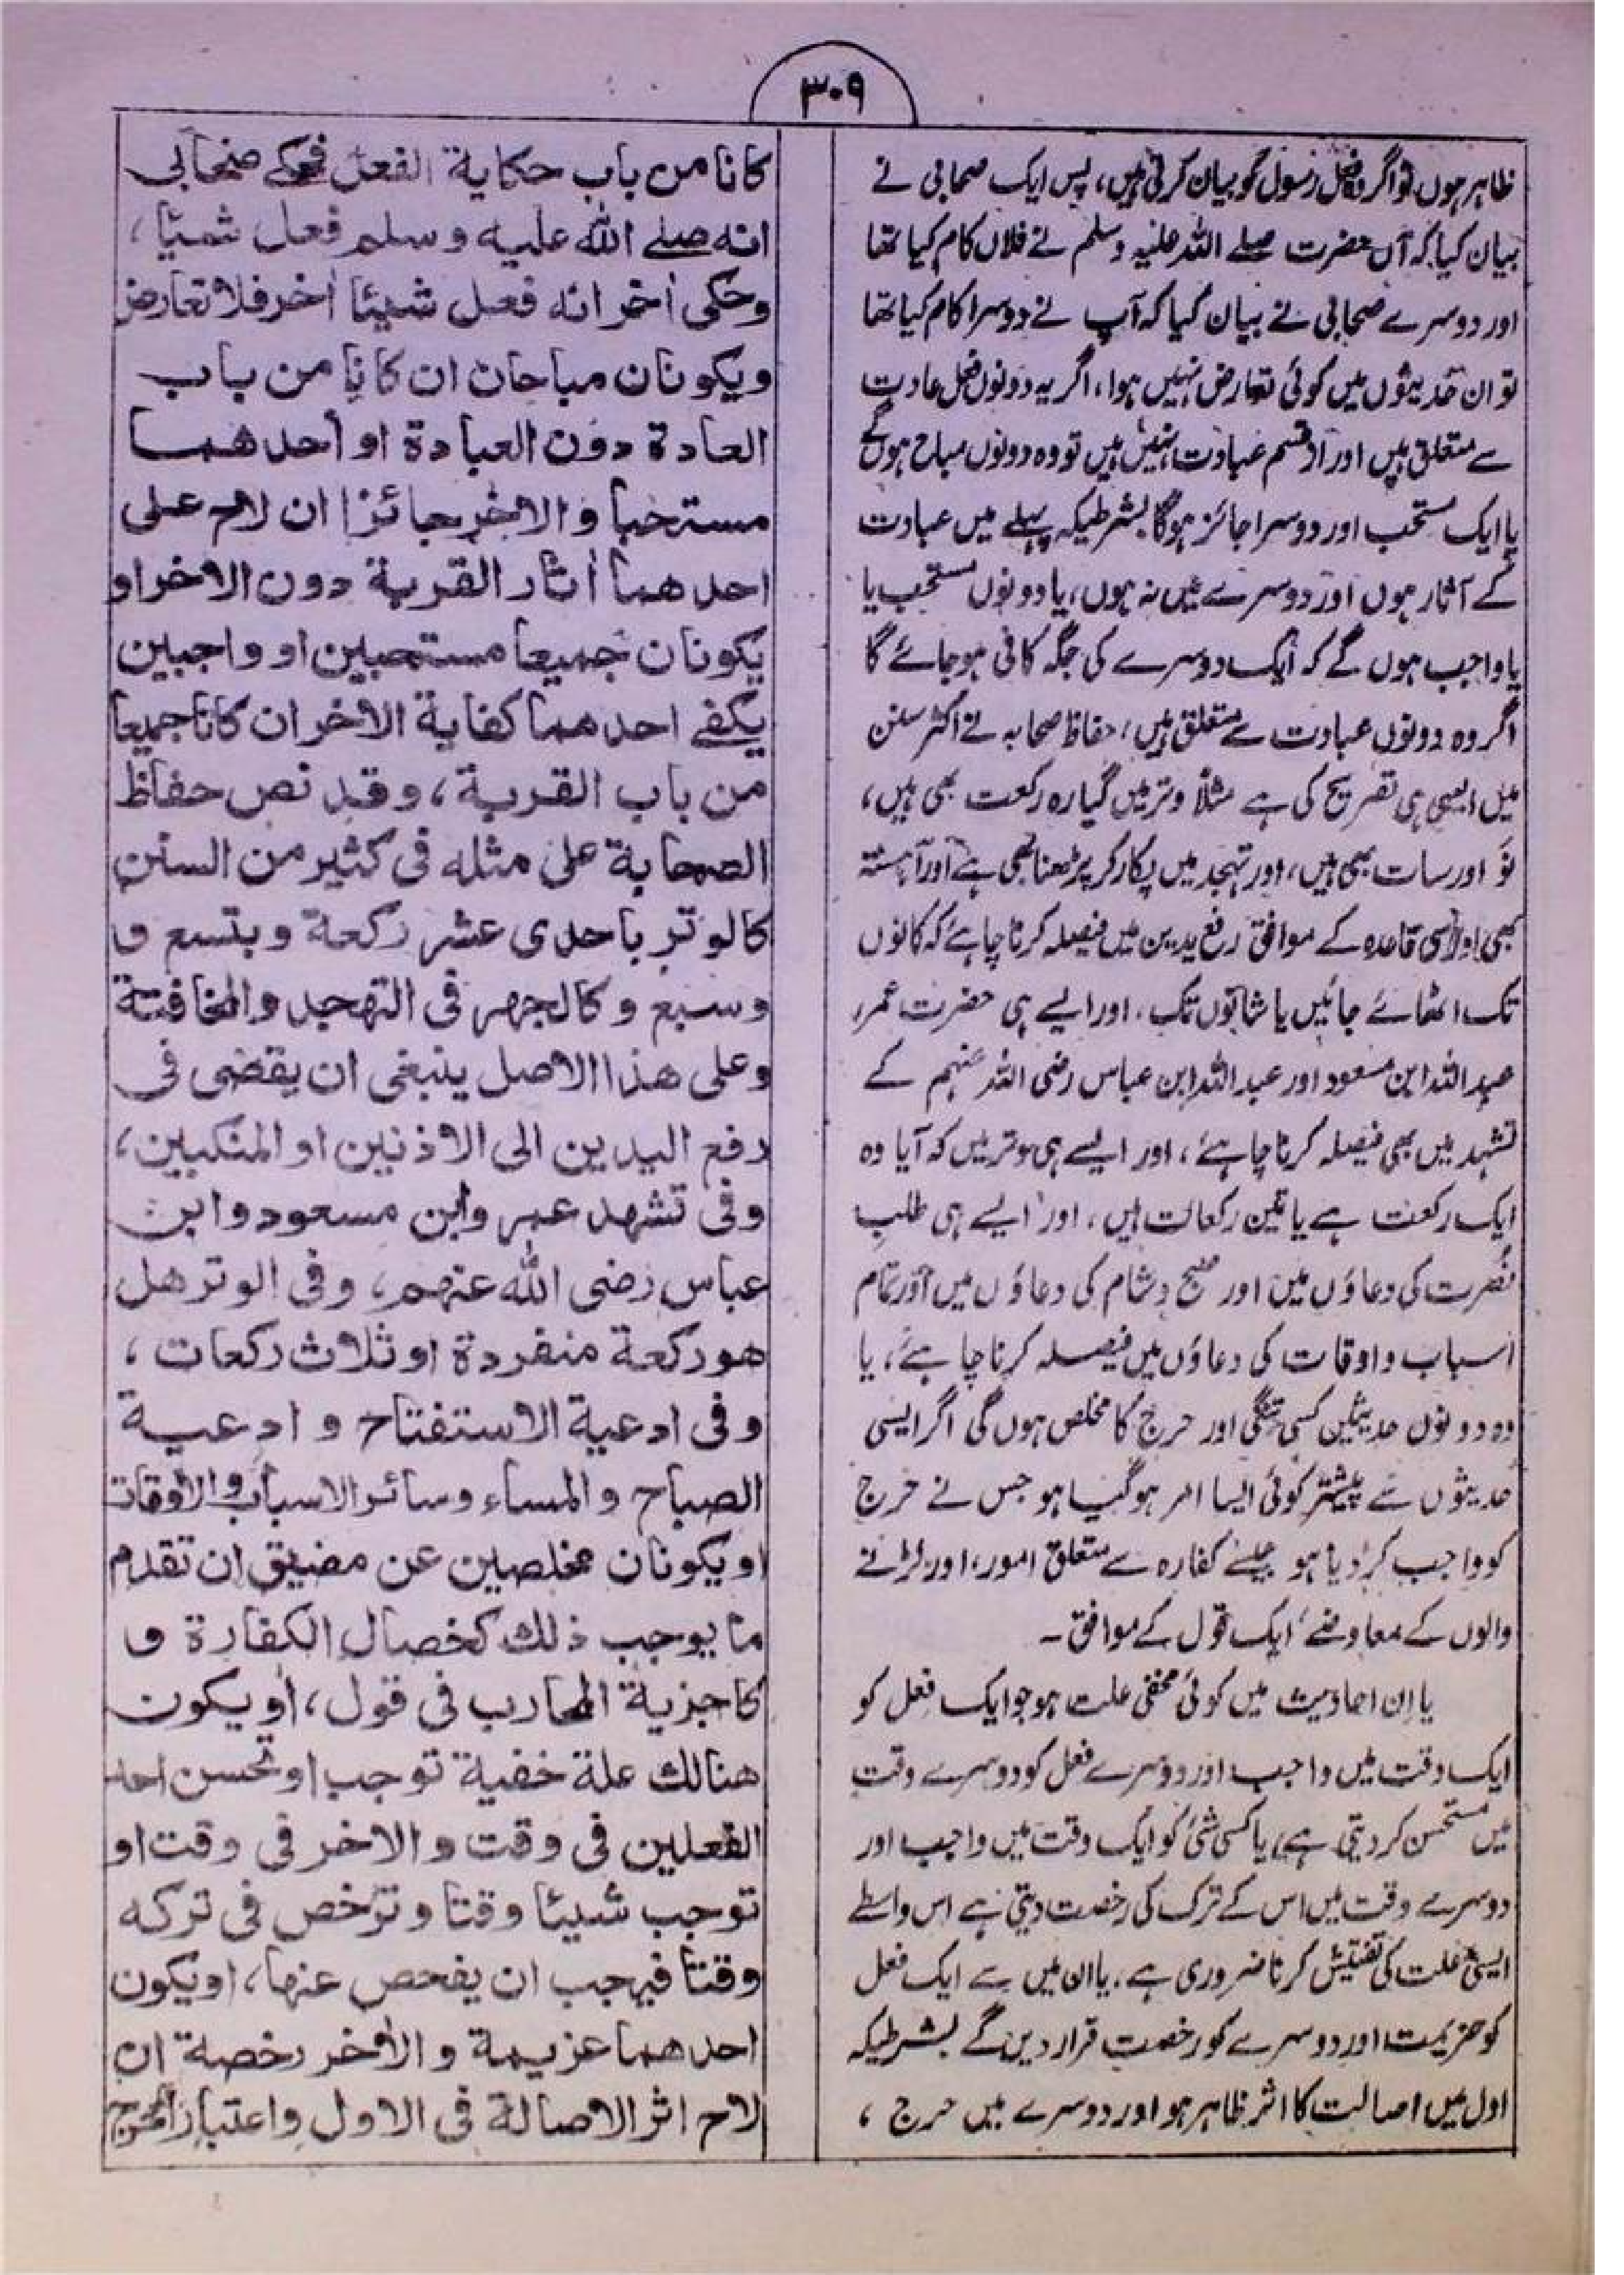 ۳۰۹
ظاہر ہوں تو اگر وہ فعل رسول کو بیان کرتی ہیں، پس ایک صحابی نے
بیان کیا کہ آں حضرت صلے اللہ علیہ وسلم نے فلاں کام کیا تھا
اور دوسرے صحابی نے بیان کیا کہ آپ نے دوسرا کام کیا تھا
تو ان حدیثوں میں کوئی تعارض نہیں ہوا، اگر یہ دونوں فعل عادت
سے متعلق ہیں اور از قسم عبادت نہیں ہیں تو وہ دونوں مباح ہونگے
یا ایک مستحب اور دوسرا جائز ہوگا بشرطیکہ پہلے میں عبادت
کے آثار ہوں اور دوسرے میں نہ ہوں، یا دونوں مستحب یا
یا واجب ہوں گے کہ ایک دوسرے کی جگہ کافی ہو جائے گا
اگر وہ دونوں عبادت سے متعلق ہیں، حفاظ صحابہ نے اکثر سنن
میں ایسی ہی تصریح کی ہے مثلاً وتر میں گیارہ رکعت بھی ہیں،
نو اور سات بھی ہیں، اور تہجد میں پکار کر پڑھنا بھی ہے اور آہستہ
بھی اور اسی قاعدہ کے موافق رفع یدین میں فیصلہ کرنا چاہئے کہ کانوں
تک اٹھائے جائیں یا شانوں تک، اور ایسے ہی حضرت عمر،
عبد اللہ ابن مسعود اور عبد اللہ ابن عباس رضی اللہ عنہم کے
تشہد میں بھی فیصلہ کرنا چاہئے، اور ایسے ہی وتر میں کہ آیا وہ
ایک رکعت ہے یا تین رکعات ہیں، اور ایسے ہی طلب
نصرت کی دعاؤں میں اور صبح و شام کی دعاؤں میں اور تمام
اسباب و اوقات کی دعاؤں میں فیصلہ کرنا چاہئے، یا
وہ دونوں حدیثیں کسی تنگی اور حرج کا مخلص ہوں گی اگر ایسی
حدیثوں سے پیشتر کوئی ایسا امر ہو گیا ہو جس نے حرج
کو واجب کر دیا ہو جیسے کفارہ سے متعلق امور، اور لڑنے
والوں کے معاوضے ایک قول کے موافق۔
یا ان احادیث میں کوئی مخفی علت ہو جو ایک فعل کو
ایک وقت میں واجب اور دوسرے فعل کو دوسرے وقت
میں مستحسن کر دیتی ہے، یا کسی شئ کو ایک وقت میں واجب اور
دوسرے وقت میں اس کے ترک کی رخصت دیتی ہے اس واسطے
ایسی علت کی تفتیش کرنا ضروری ہے، یا ان میں سے ایک فعل
کو عزیمت اور دوسرے کو رخصت قرار دیں گے بشرطیکہ
اول میں اصالت کا اثر ظاہر ہو اور دوسرے میں حرج ،
كانا من باب حكاية الفعل فحكے صحابی
انه صلے اللہ علیه وسلم فعل شيئا،
وحكى اٰخر انه فعل شيئا اٰخر فلا تعارض
ويكونان مباحان ان كانا من باب
العادة دون العبادة او أحدهما
مستحبا والاٰخر جائزا ان لاح على
احدهما اٰثار القربة دون الاخر او
يكونان جميعا مستحبين او واجبين
يكفے احدهما كفاية الاٰخر ان كانا جميعا
من باب القربة، وقد نص حفاظ
الصحابة على مثله فى كثير من السنن
كالوتر باحدى عشر ركعة وبتسع و
وسبع وكالجهر فى التهجد والمخافتة
وعلى هذا الاصل ينبغى ان يقضى فى
رفع اليدين الى الاذنين او المنكبين،
وفى تشهد عمر وابن مسعود وابن
عباس رضى اللہ عنهم، وفى الوتر هل
هو ركعة منفردة او ثلاث ركعات ،
وفى ادعية الاستفتاح و ادعية
الصباح والمساء وسائر الاسباب والاوقات
او يكونان مخلصين عن مضيق ان تقدم
ما يوجب ذلك كخصال الكفارة و
كاجزية المحارب فى قول، او يكون
هنالك علة خفية توجب او تحسن احد
الفعلين فى وقت والاخر فى وقت او
توجب شيئا وقتا وترخص فى تركه
وقتا فيجب ان يفحص عنها، او يكون
احدهما عزيمة والاٰخر رخصة ان
لاح اثر الاصالة فى الاول واعتبار الحرج